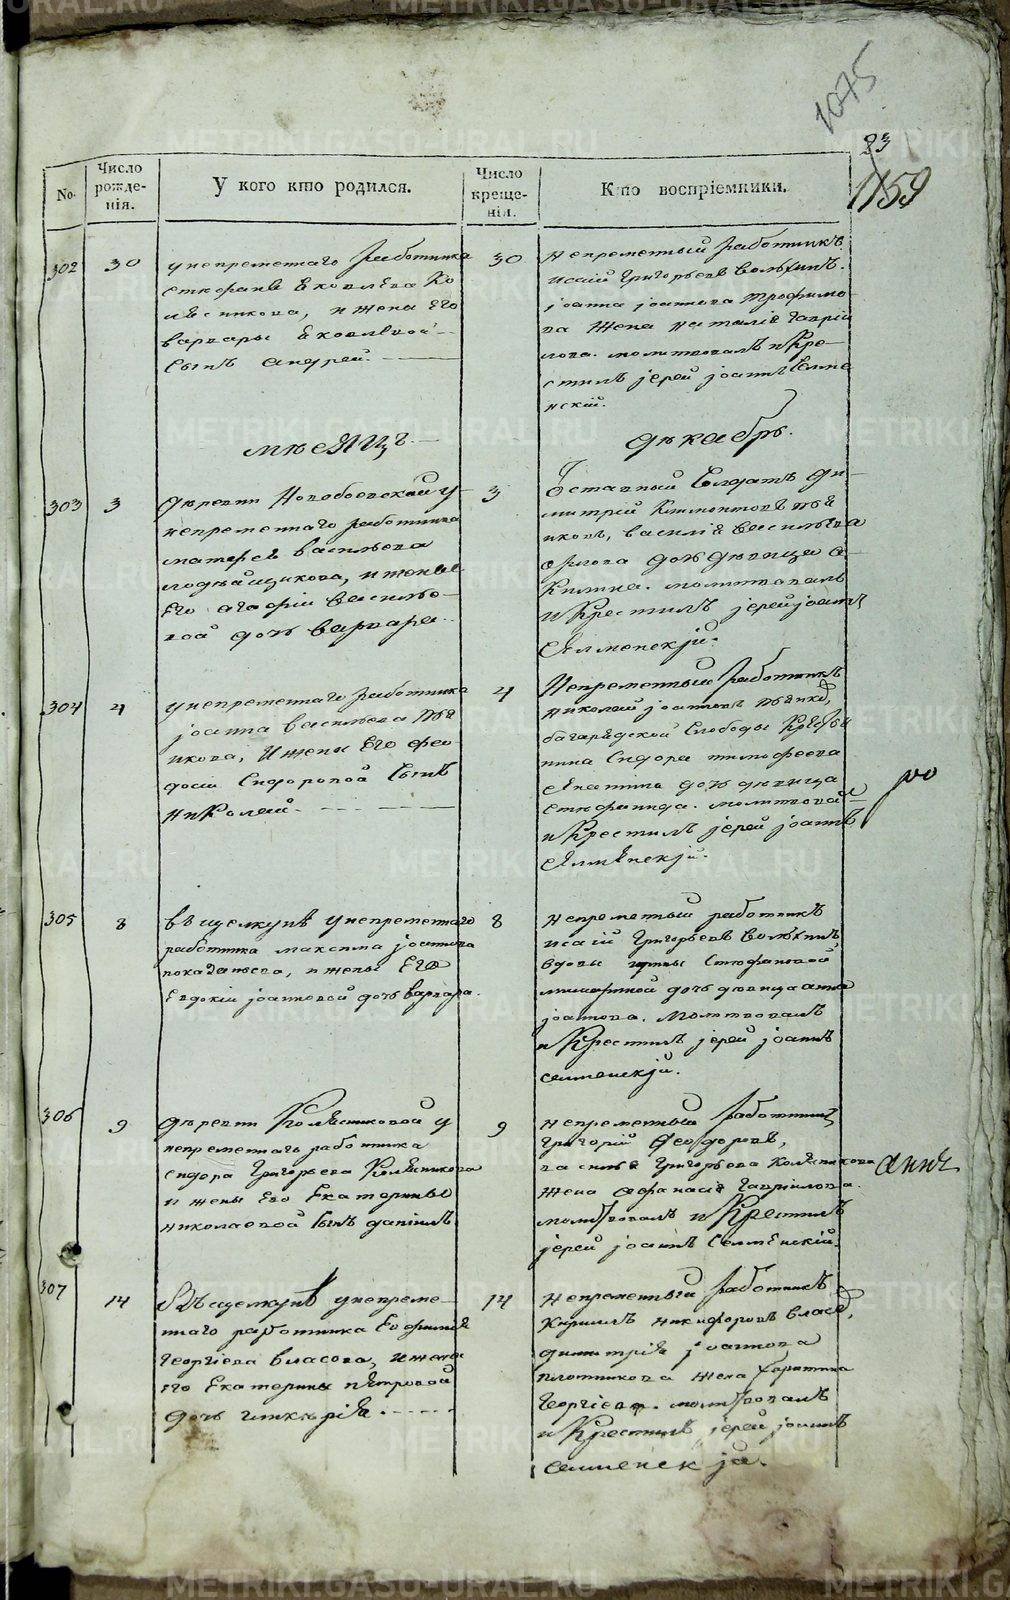 1075
23
1159
No.
Число рожде-нія.
У кого кто родился.
Число креще-нія.
Кто воспріемники.
302
30
унепременнаго работника
стефана яковлева ко
лесникова, и жена его
варвары яковлевой
сынъ андрей.
30
непременный работникъ
исаій григорьевъ
іоанна іоаннова трофимо
ва жена наталія гаврі
лова. молитвовалъ и кре-
стилъ іерей іоаннъ селме
нскій.
мѣсяцъ
декабрь.
303
3
деревни новобоевской у
непременнаго работника
матфея васильева
и жены
его агафіи василье-
вой дочь варвара.
3
отставный солдатъ ди-
митрій климонтовъ пья
нковъ, василія васильева
орлова дочь девица а-
килина. молитвовалъ
и крестилъ іерей іоаннъ
селменскій.
304
4
унепременнаго работника
іоанна васильева пья
нкова, и жены его фео
досіи сидоровой сынъ
николай.
4
непременный работникъ
николай іоанновъ
багаряцкой слободы кресть
нина сидора тимофеева
дочь девица
стефанида. молитвовал
и крестилъ іерей іоаннъ
селменскій.
305
8
въ щелкунѣ унепременнаго
работника максима іоаннова
и жены его
евдокіи іоанновой дочь варвара.
8
непременный работникъ
исаій григорьевъ
вдовы ирины стефановой
дочь девица анна
іоаннова. молитвовалъ
и крестилъ іерей іоаннъ
селменскій.
306
9
деревни колесниковой у
непременнаго работника
сидора григорьева колесникова
и жены его екатерины
николаевой сынъ даніилъ
9
непременный работникъ
григорій феодоровъ,
василья григорьева колесникова
жена афанасія гаврилова.
молитвовалъ и крестилъ
іерей іоаннъ селменскій.
307
14
въ щелкунѣ унепреме-
ннаго работника евфимія
георгіева власова, и жены
его екатерины петровой
дочь гликерія.
14
непременный работникъ
кириллъ никифоровъ власов,
димитрія іоаннова
плотникова жена харитина
георгіева. молитвовалъ
и крестилъ іерей іоаннъ
селменскій.
METRIKI.GASO-URAL.RU